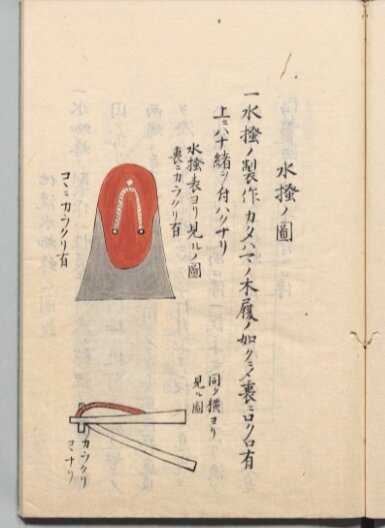 水搔ノ圖
一水搔ノ製作カタハマノ木履ノ如クシテ裏ニロクロ有
上ニハナ緒ヲ付ハクナリ
水搔表ヨリ見ルノ圖
裏ニカラクリ有
コヽニカラクリ有
同ク横ヨリ
見ル圖
カラクリ
コヽナリ